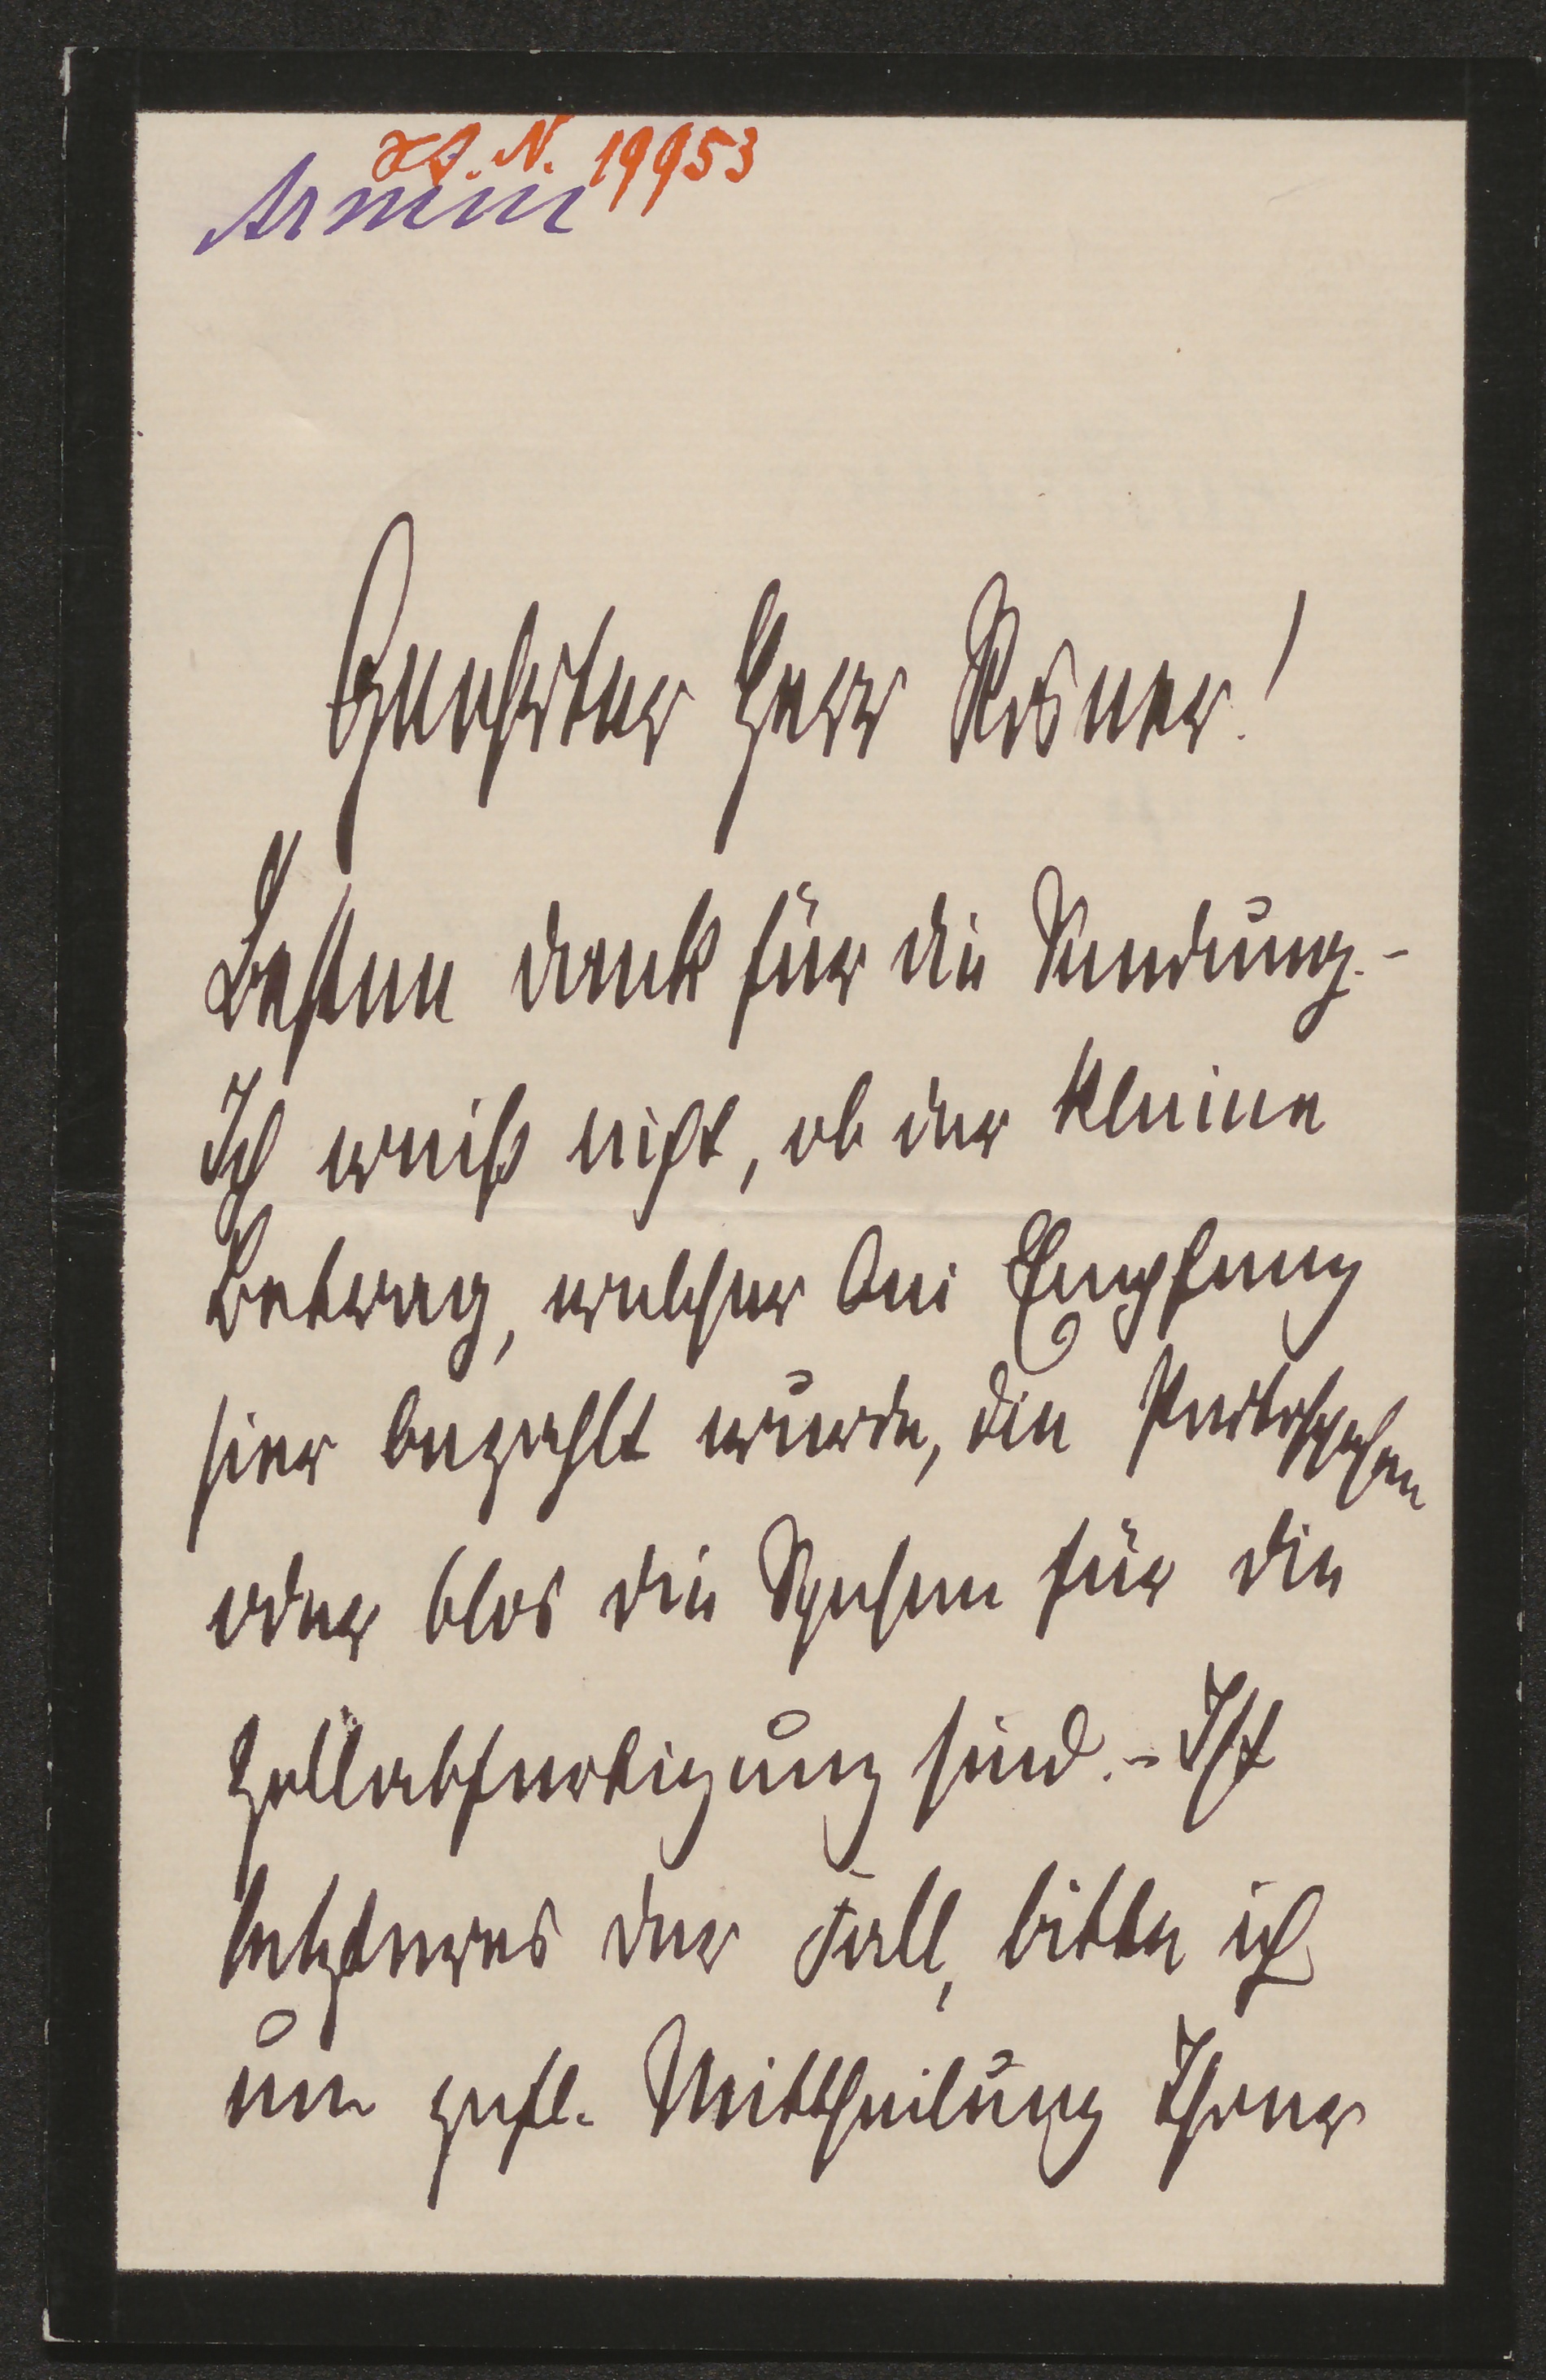 J. N. 19953
Armin
Geehrter Herr Rosner!
Besten Dank für die Sendung. -
Ich weiß nicht, ob der kleine
Betrag, welcher bei Empfang
hier bezahlt wurde, die Portospesen
oder blos die Spesen für die
Zollabfertigung sind. - Ist
letzteres der Fall, bitte ich
um gefl. Mittheilung Ihrer